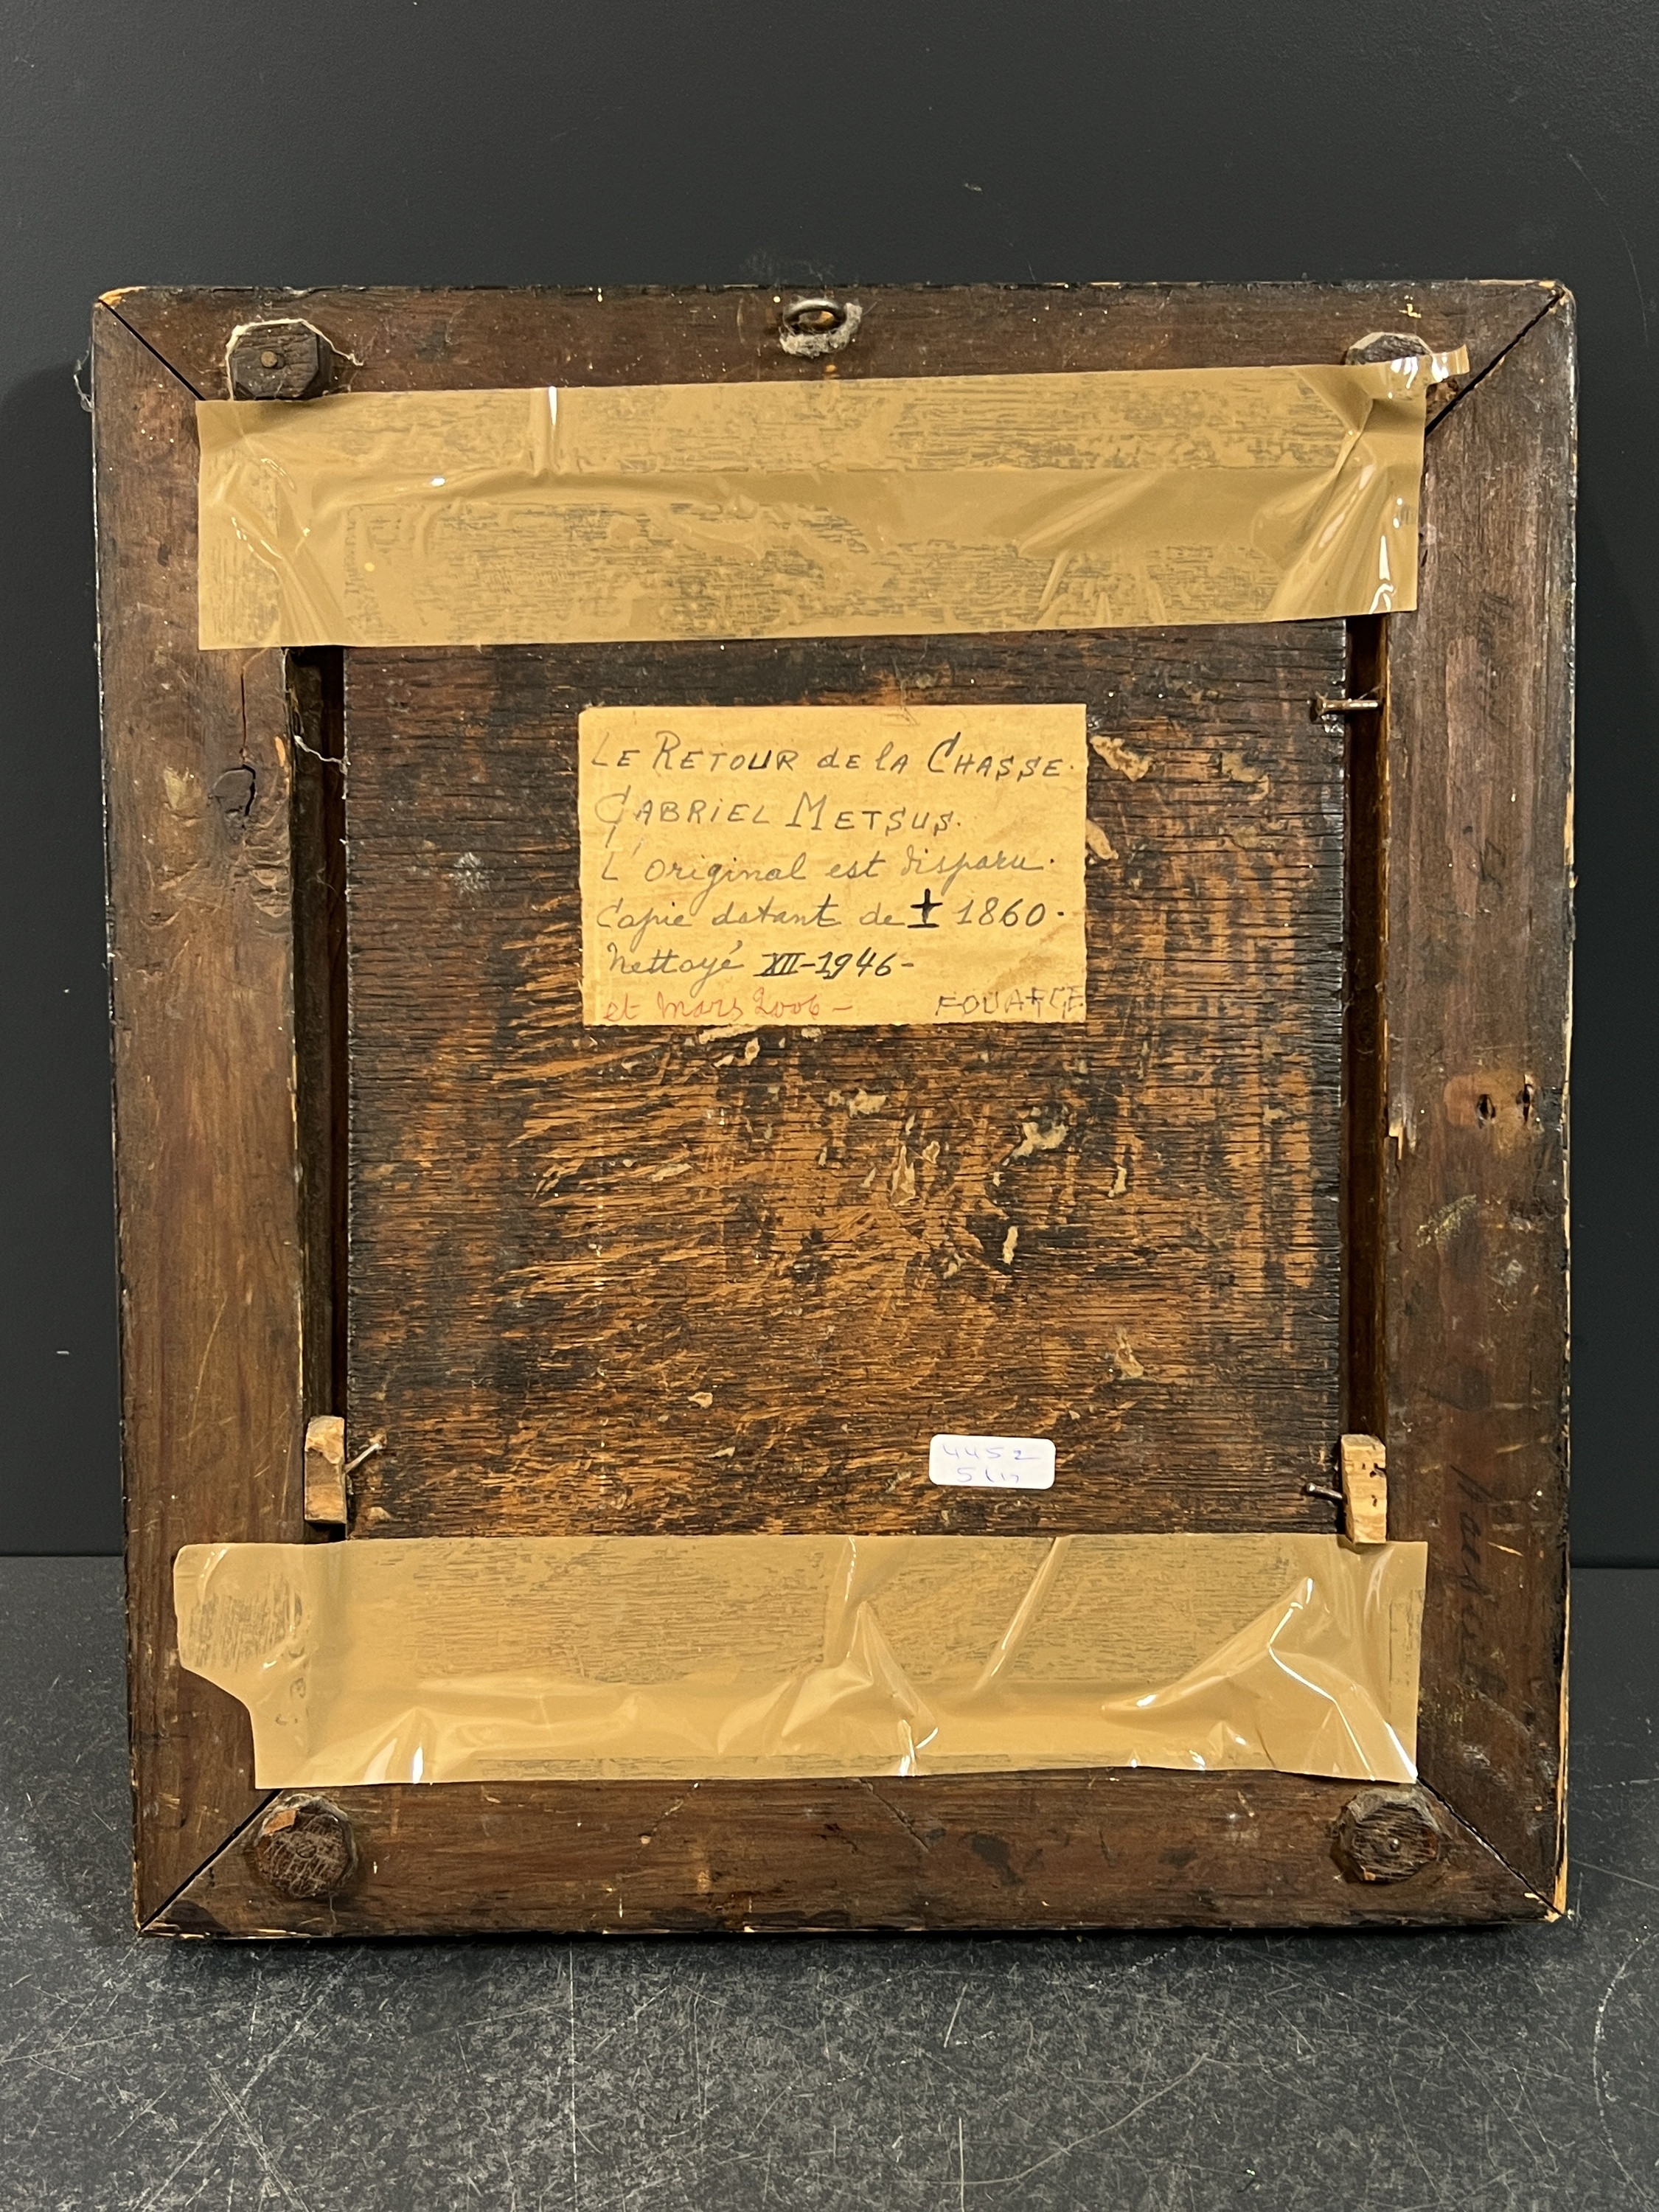 LE RETOUR de la CHASSE.
GABRIEL METSUS.
L'original est disparu.
Copie datant de ± 1860.
Nettoyé XII-1946-
et Mars 2006 -
4452